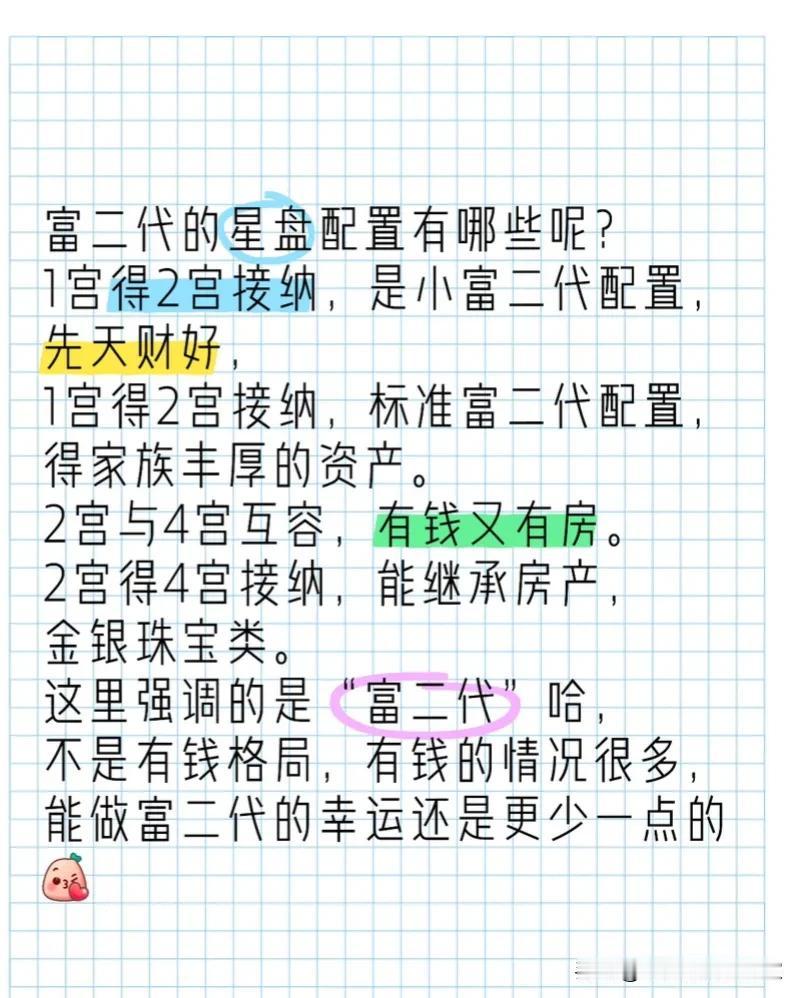 富二代的星盘配置有哪些呢？
1宫得2宫接纳，是小富二代配置，
先天财好，
1宫得2宫接纳，标准富二代配置，
得家族丰厚的资产。
2宫与4宫互容，有钱又有房。
2宫得4宫接纳，能继承房产，
金银珠宝类。
这里强调的是“富二代”哈，
不是有钱格局，有钱的情况很多，
能做富二代的幸运还是更少一点的